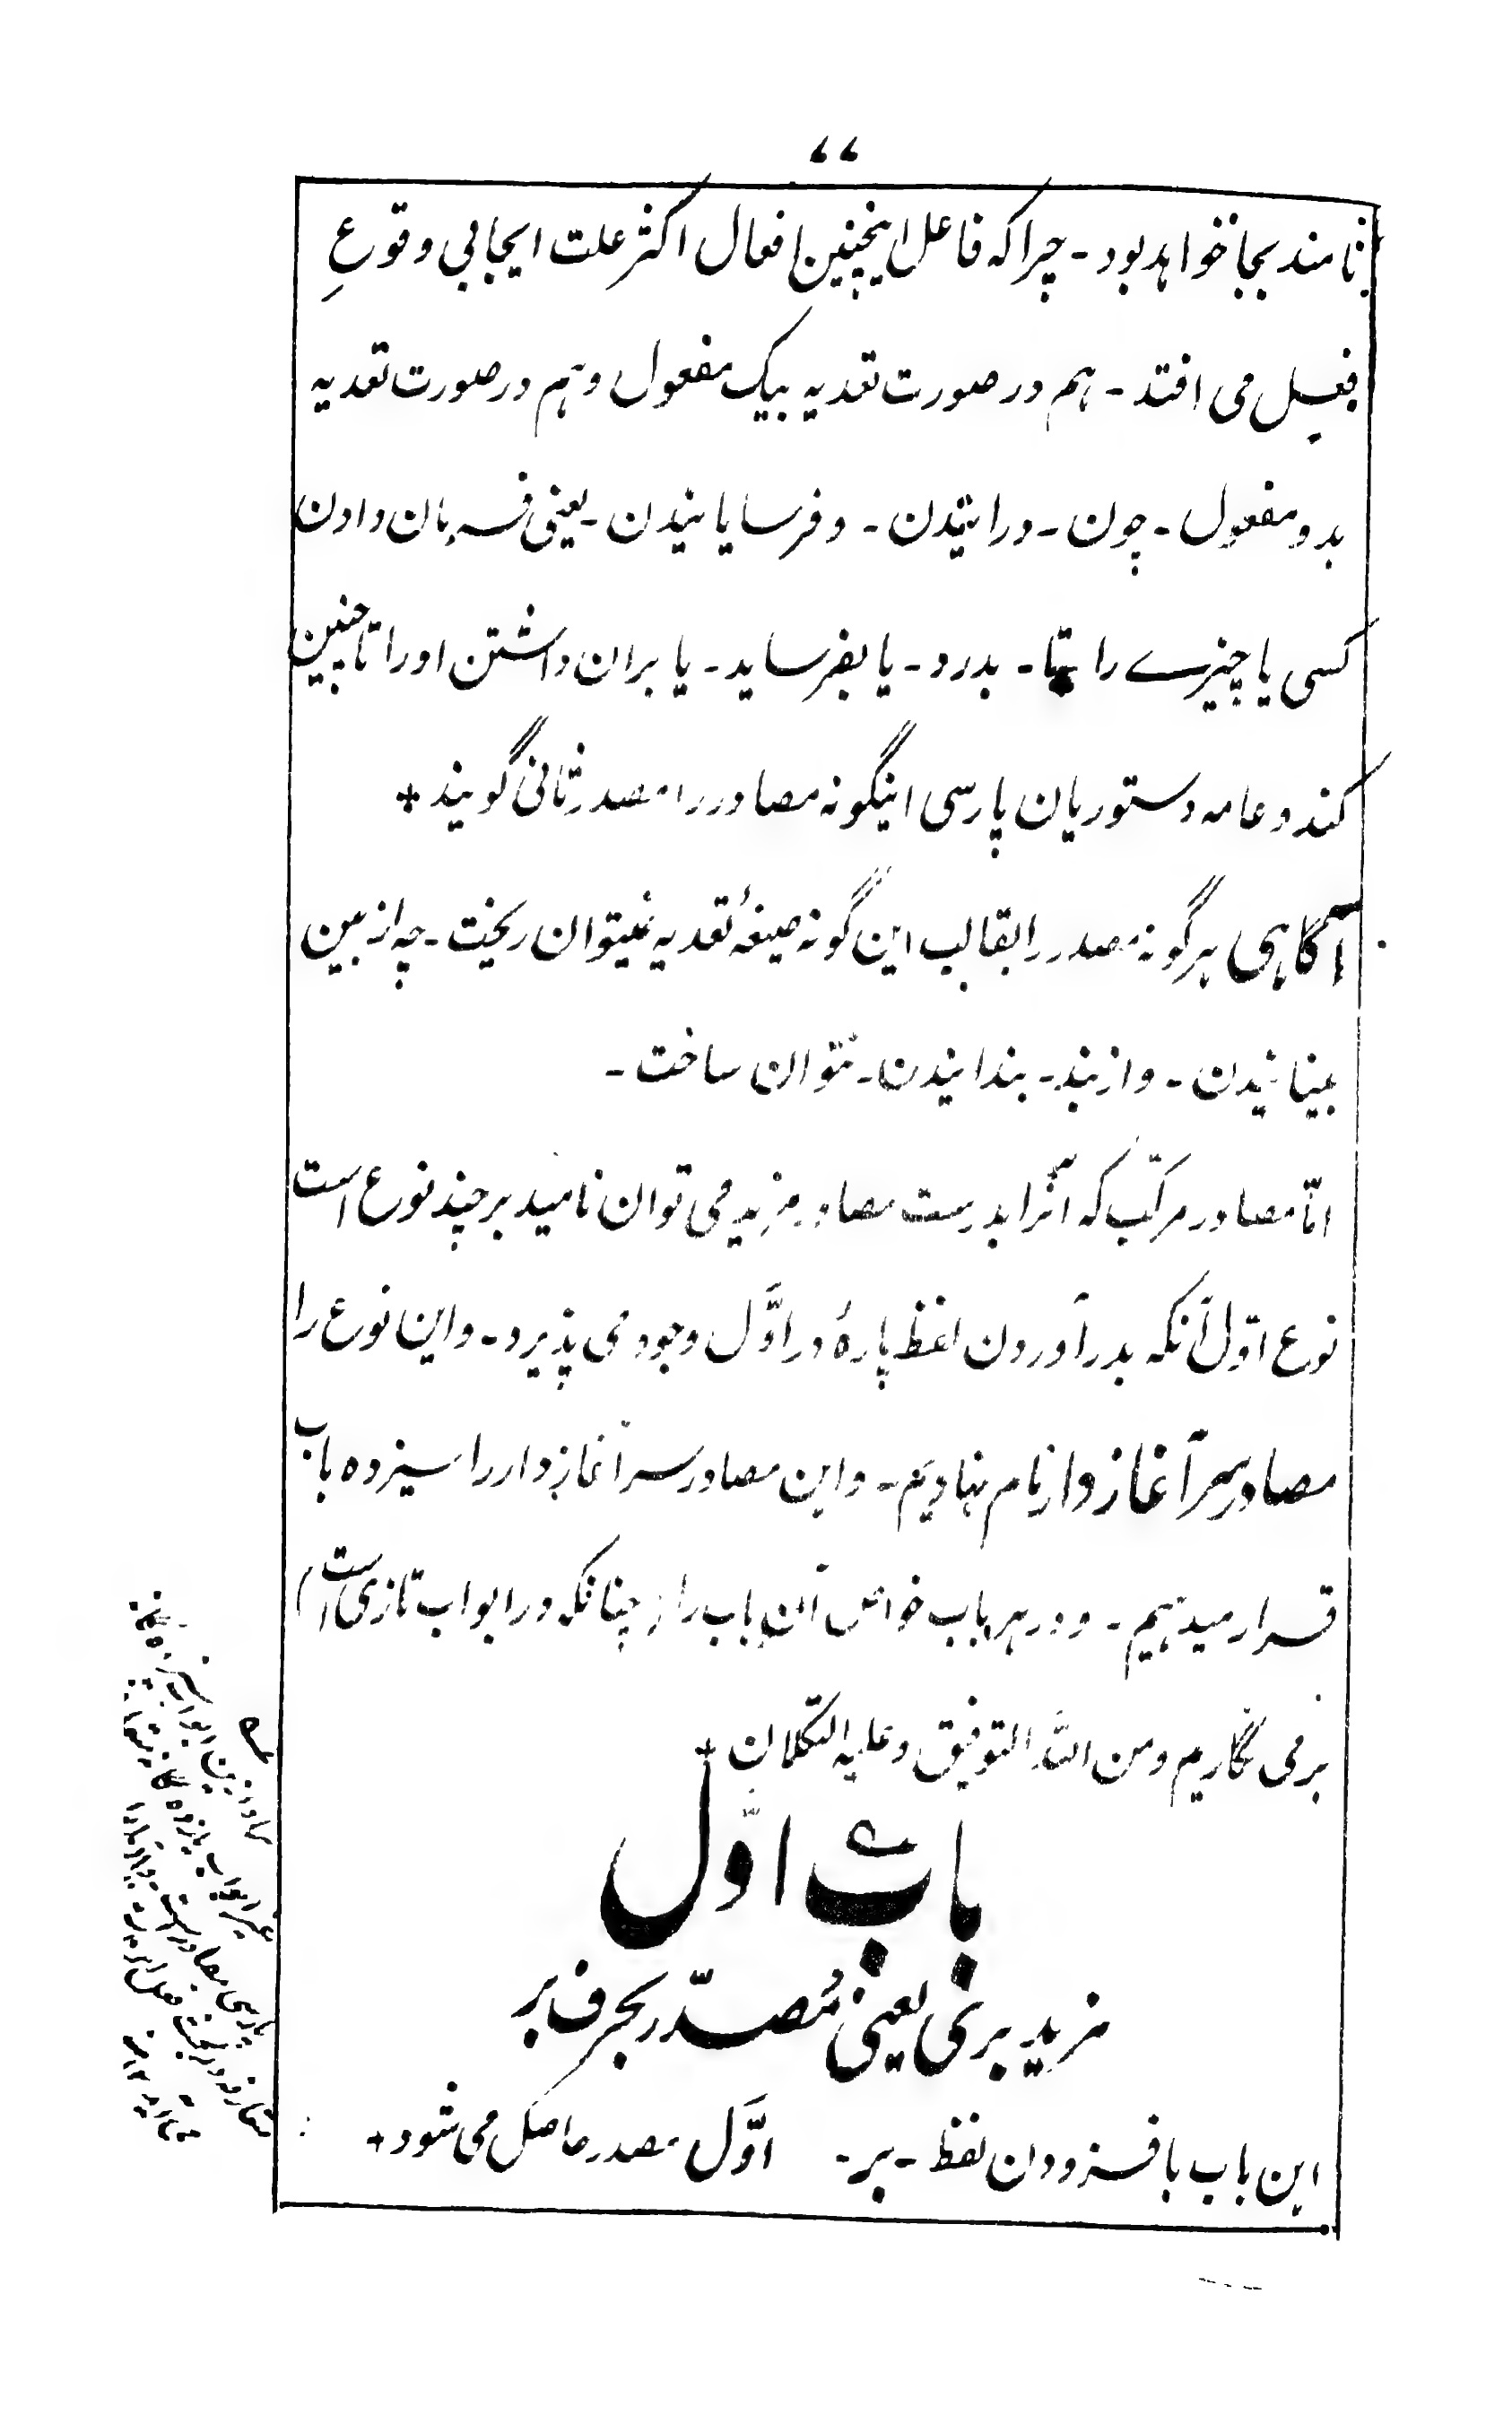 ۶۶
نامند بجا خواهد بود ـ چراکه فاعل اینچنین افعال اکثر علت ایجابی وقوعِ
فعل می افتد ـ هم در صورت تعدیه بیک مفعول و هم در صورت تعدیه
بدو مفعول ـ چون ـ درانیدن ـ و فرسایانیدن ـ یعنی فرمان دادن
کسی یا چیزے را تا ـ بدرد ـ یا بفرساید ـ یا بران داشتن او را تا چنین
کند و عامه دستوریان پارسی اینگونه مصادر را مصدر ثانی گویند +
آگاهی هرگونه مصدر را بقالب این گونه صیغهٔ تعدیه نمیتوان ریخت ـ چه از بین
بینانیدن ـ و از بند ـ بندانیدن ـ نتوان ساخت ـ
امّا مصادر مرکّب که آنرا بدرست مصادر مزید می توان نامید بر چند نوع است
نوع اوّل آنکه بدر آوردن لفظ پارهٔ در اوَّل وجود می پذیرد ـ و این نوع را
مصادر سرآغاز دار نام نهادیم ـ و این مصادر سرآغاز دار را سیزده باب
قرار میدهیم ـ و در هر باب خواص آن باب را چنانکه در ابواب تازی است
برمی نگاریم و من اللّه التوفیق و علیه التکلان +
باب اوّل
مزید برنی یعنی مُصدّر بحرف بر
این باب با فزودن لفظ ـ بر ـ اوَّل مصدر حاصل می شود +